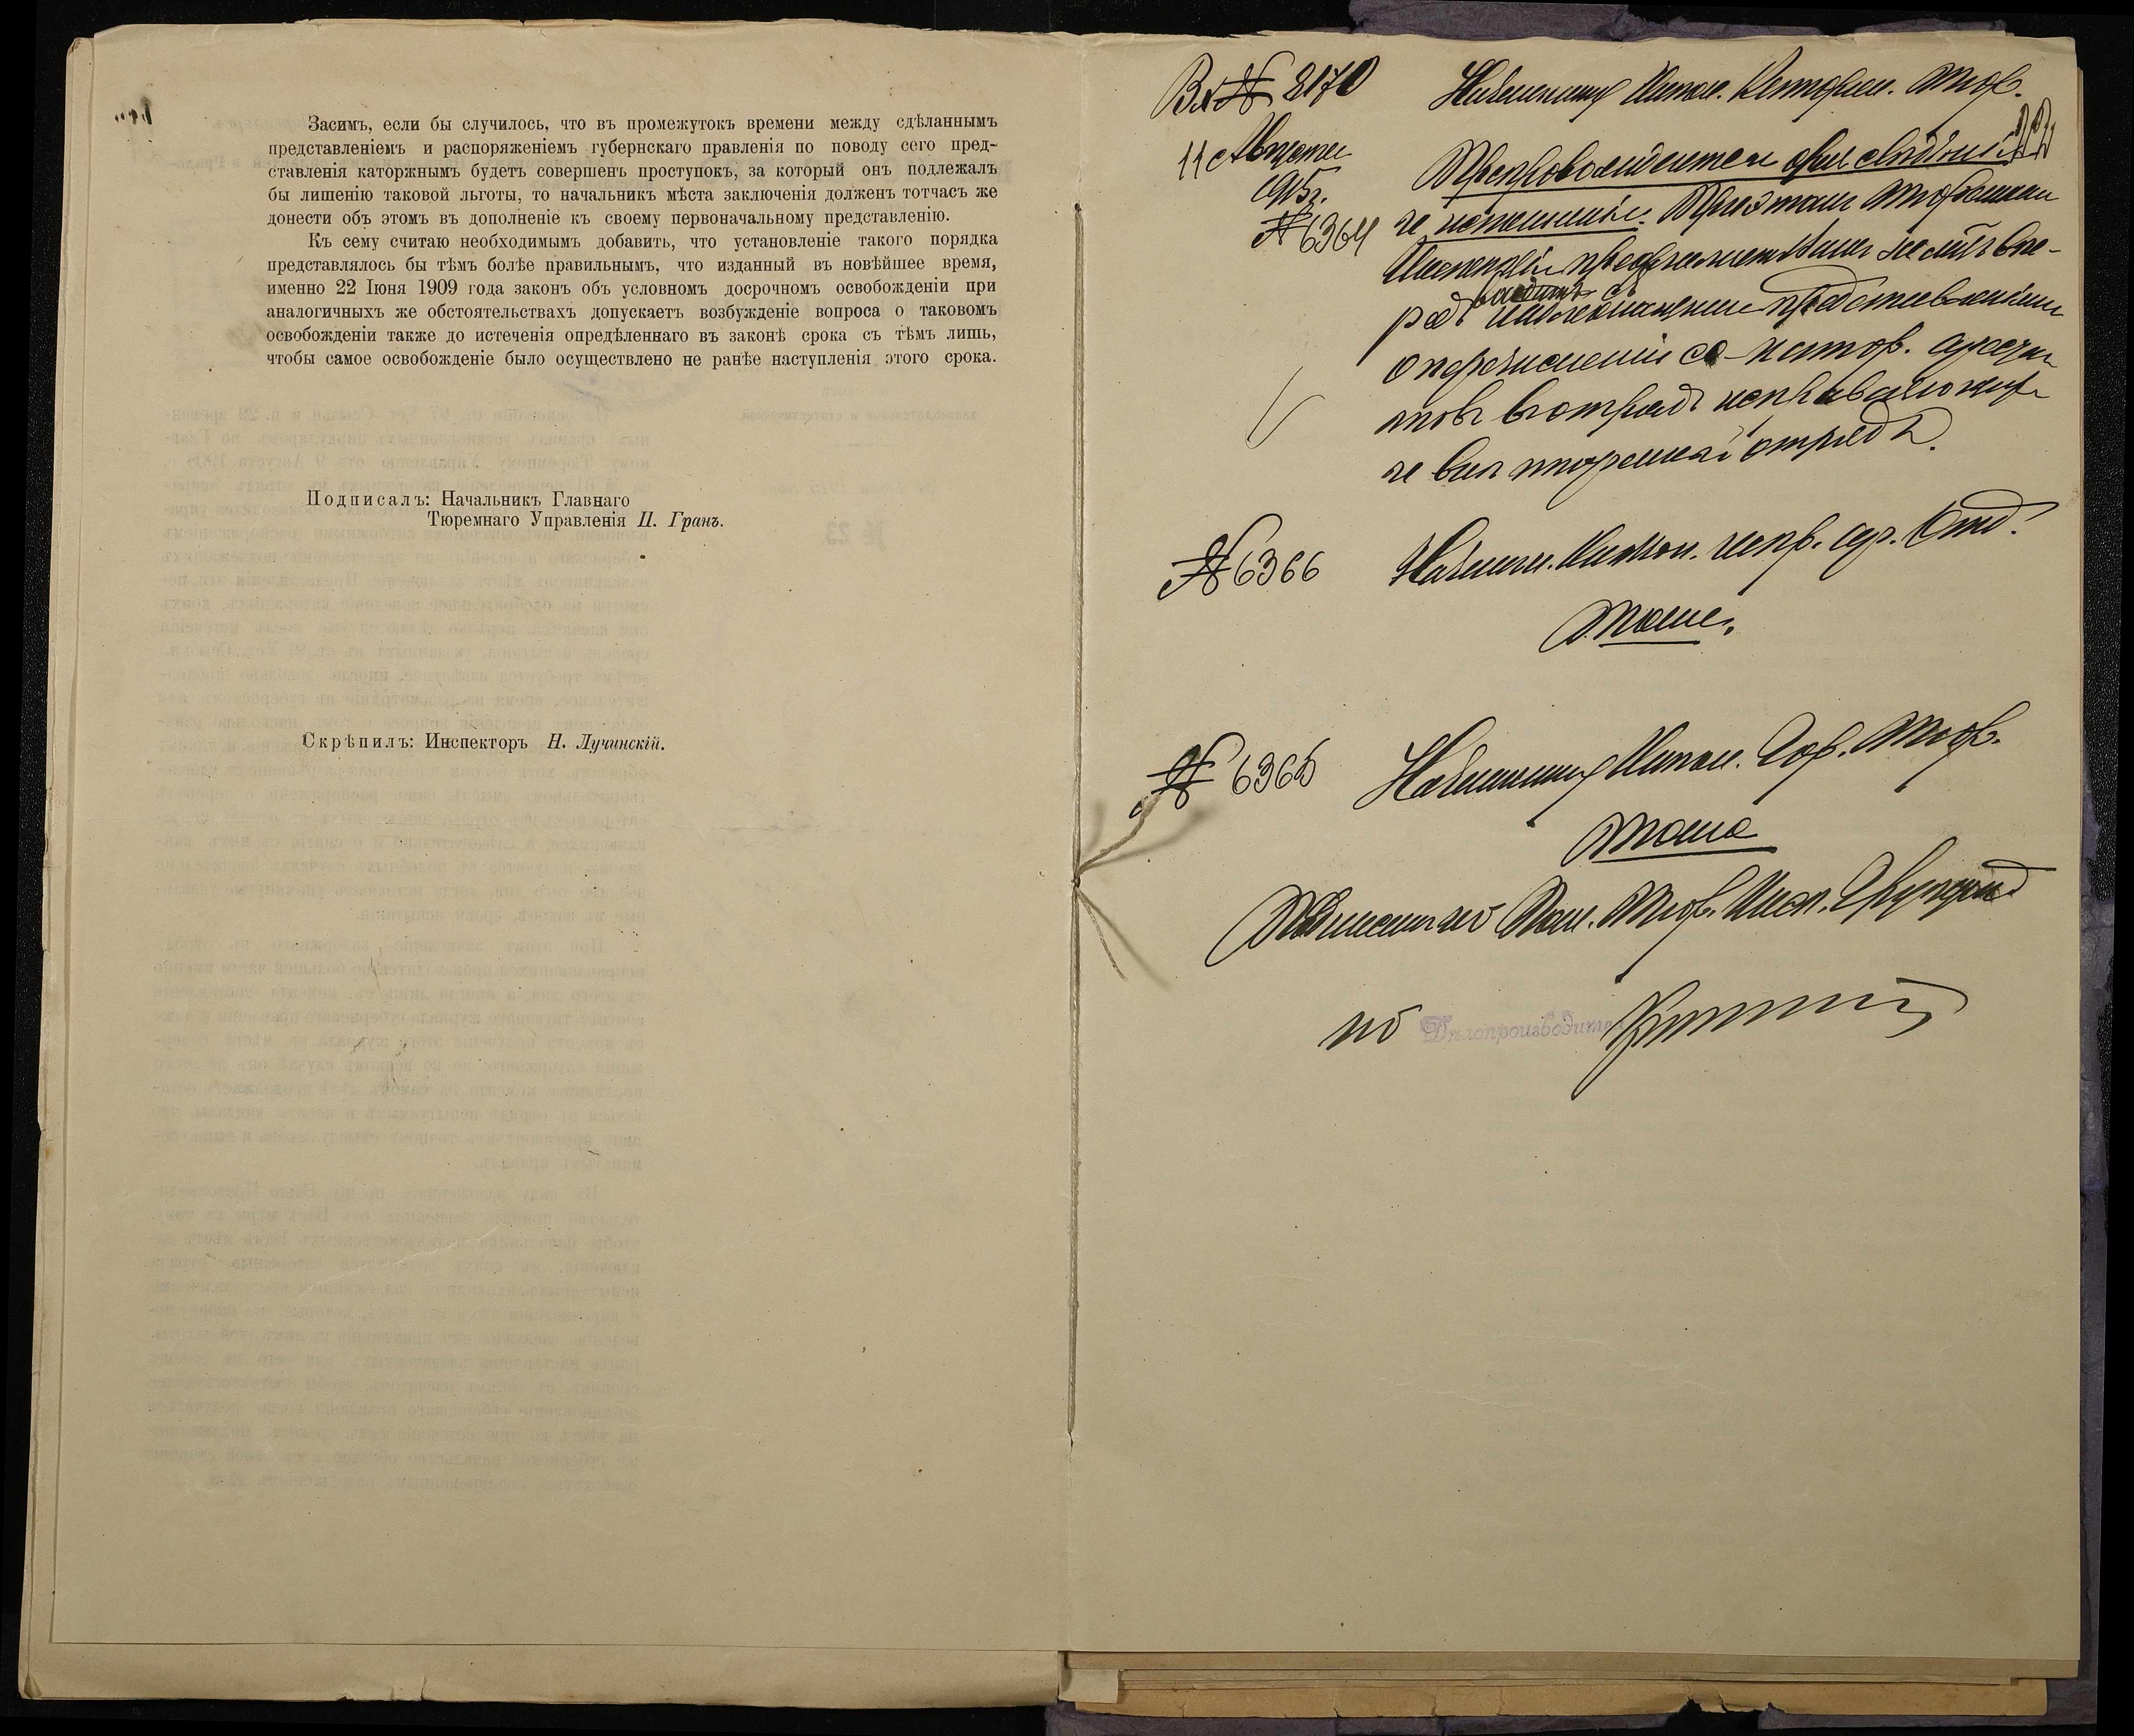 Засимъ, если бы случилось, что въ промежутокъ времени между сдѣланнымъ
представленіемъ и распоряженіемъ губернскаго правленія по поводу сего пред-
ставленія каторжнымъ будетъ совершенъ проступокъ, за который онъ подлежалъ
бы лишенію таковой льготы, то начальникъ мѣста заключенія долженъ тотчасъ же
донести объ этомъ въ дополненіе къ своему первоначальному представленію.
Къ сему считаю необходимымъ добавить, что установленіе такого порядка
представлялось бы тѣмъ болѣе правильнымъ, что изданный въ новѣйшее время,
именно 22 Іюня 1909 года законъ объ условномъ досрочномъ освобожденіи при
аналогичныхъ же обстоятельствахъ допускаетъ возбужденіе вопроса о таковомъ
освобожденіи также до истеченія опредѣленнаго въ законѣ срока съ тѣмъ лишь,
чтобы самое освобожденіе было осуществлено не ранѣе наступленія этого срока.
Подписалъ: Начальникъ Главнаго
Тюремнаго Управленія П. Гранъ.
Скрѣпилъ: Инспекторъ Н. Лучинскій.
Вх № 8170
11 Августа
915 г.
№ 6364
Начальнику Каторжн. Тюр.
Препровождается для свѣдѣнія
и исполненія. При этомъ Тюремная
Инспекція впе-
редъ входить съ
надлежащими представленіями
о перечисленіи катор. арестан
товъ въ отрядъ исправляющих
№ 6366
Начальн. испр. ар. Отд.
Тоже.
№ 6365
Начальнику Тюр.
Тоже
Подписалъ Пом. Тюр. Инсп.
Дѣлопроизводитель